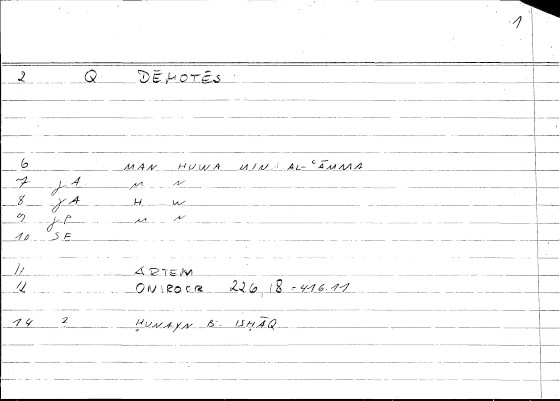 1
2 Q DĒMOTĒS
6 MAN HUWA MIN AL-ʿĀMMA
7 jA M N
8 jA H W
9 jP M N
10 SE
11 ARTEM
12 ONIROCR 226,18-416.11
14 2 ḤUNAYN B. ISḤĀQ